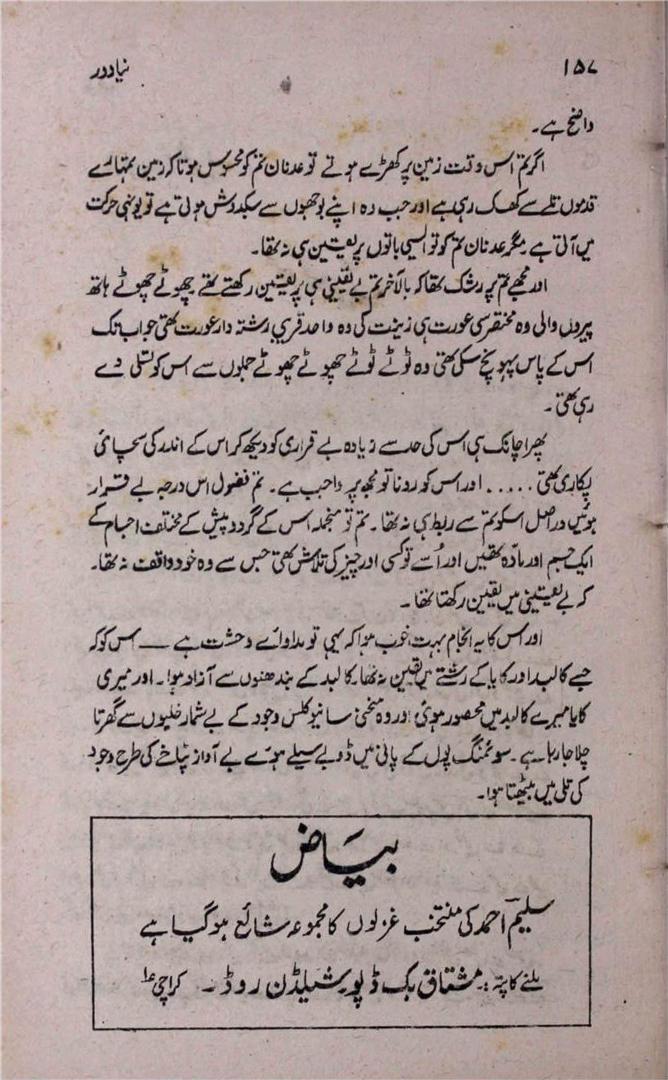 ۱۵۷ نیا دور
واضح ہے۔
اگر تم اس وقت زمین پر کھڑے ہوتے تو عدنان تم کو محسوس ہوتا کہ زمین تمہارے
قدموں تلے سے کھسک رہی ہے اور جب وہ اپنے بوجھوں سے سبکدوش ہوتی ہے تو یونہی حرکت
میں آتی ہے مگر عدنان تم کو تو ایسی باتوں پر یقین ہی نہ تھا۔
اور مجھے تم پر رشک تھا کہ بالآخر تم بے یقینی ہی پر یقین رکھتے تھے چھوٹے چھوٹے ہاتھ
پیروں والی وہ مختصر سی عورت ہی زینت کی وہ واحد قریبی رشتہ دار عورت تھی جو اب تک
اس کے پاس پہونچ سکی تھی وہ ٹوٹے ٹوٹے چھوٹے چھوٹے جملوں سے اس کو تسلی دے
رہی تھی۔
پھر اچانک ہی اس کی حد سے زیادہ بے قراری کو دیکھ کر اس کے اندر کی سچائی
پکاری تھی ..... اور اس کو رونا تو مجھ پر واجب ہے۔ تم فضول اس درجہ بے قرار
ہوئیں دراصل اسکو تم سے ربط ہی نہ تھا۔ تم تو منجملہ اس کے گرد و پیش کے مختلف اجسام کے
ایک جسم اور مادّہ تھیں اور اُسے تو کسی اور چیز کی تلاش تھی جس سے وہ خود واقف نہ تھا۔
کہ بے یقینی میں یقین رکھتا تھا۔
اور اس کا یہ انجام بہت خوب ہوا کہ یہی تو مداوائے وحشت ہے — اس کو کہ
جسے کالبد اور کایا کے رشتے پر یقین نہ تھا۔ کالبد کے بندھنوں سے آزاد ہوا۔ اور میری
کایا میرے کالبد میں محصور ہوئی اور وہ منحنی سا نیوکلس وجود کے بے شمار خلیوں سے گھرتا
چلا جا رہا ہے۔ سوئمنگ پول کے پانی میں ڈوبے سیلے ہوئے بے آواز پٹاخے کی طرح وجود
کی تلی میں بیٹھتا ہوا۔
بیاض
سلیم احمد کی منتخب غزلوں کا مجموعہ شائع ہو گیا ہے
ملنے کا پتہ:۔ مشتاق بک ڈپو شیلڈن روڈ۔ کراچی ۱